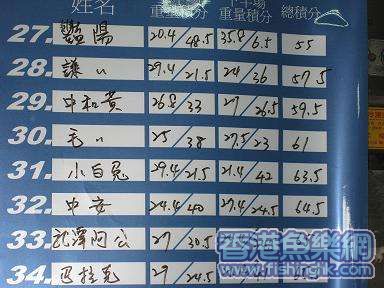 姓名 重量積分 下半場 重量積分 總積分
27. 豔陽 20.4/48.5 35.8/6.5 55
28. 謙〃 29.4/21.5 24/36 57.5
29. 中和黃 26.8/33 27/26.5 59.5
30. 毛〃 25/38 27.5/23 61
31. 小白兔 29.4/21.5 21.4/42 63.5
32. 中安 24.4/40 27.4/24.5 64.5
33. 龍潭阿公 27/30.5
34. 巴拉克 29/24.5
香港魚樂網
www.fishinghk.com